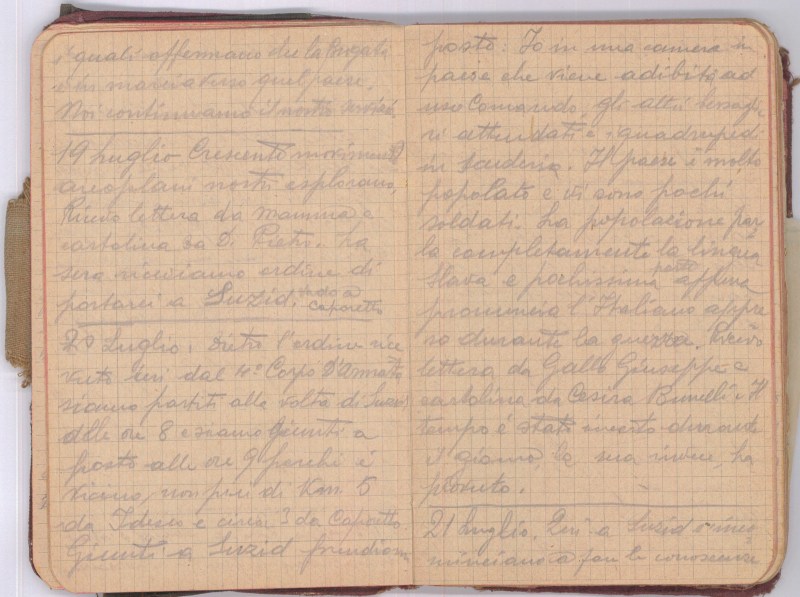 i quali affermano che la Brigata
è in marcia verso quel paese.
Noi continuiamo il nostro servizio
19 Luglio Crescente movimento
areoplani nostri esplorano,
Ricevo lettera da mamma e
cartolina da Di Pietro. La
sera riceviamo ordine di
portarci a Suzid, vicino a
Caporetto
20 Luglio. Dietro l'ordine rice
vuto ieri dal 4° Corpo D'Armata
siamo partiti alla volta di Suzid
alle ore 8 e siamo giunti a
posto alle ore 9 perchè è
vicino, non più di Km. 5
da Idersco e circa 3 da Caporetto
Giunti a Suzid prendiamo
posto: Io in una camera in
paese che viene adibita ad
uso Comando, gli altri bersaglie
ri attendati e i quadrupedi
in scuderia. Il paese è molto
popolato e vi sono pochi
soldati. La popolazione par
la completamente la lingua
slava e pochissima parte appena
pronuncia l'Italiano appre
so durante la guerra. Ricevo
lettera da Gallo Giuseppe e
cartolina da Cesira Brunelli. Il
tempo è stato incerto durante
il giorno, la sera invece, ha
piovuto.
21 Luglio. Qui a Suzid si inco
minciano a fare le conoscenze